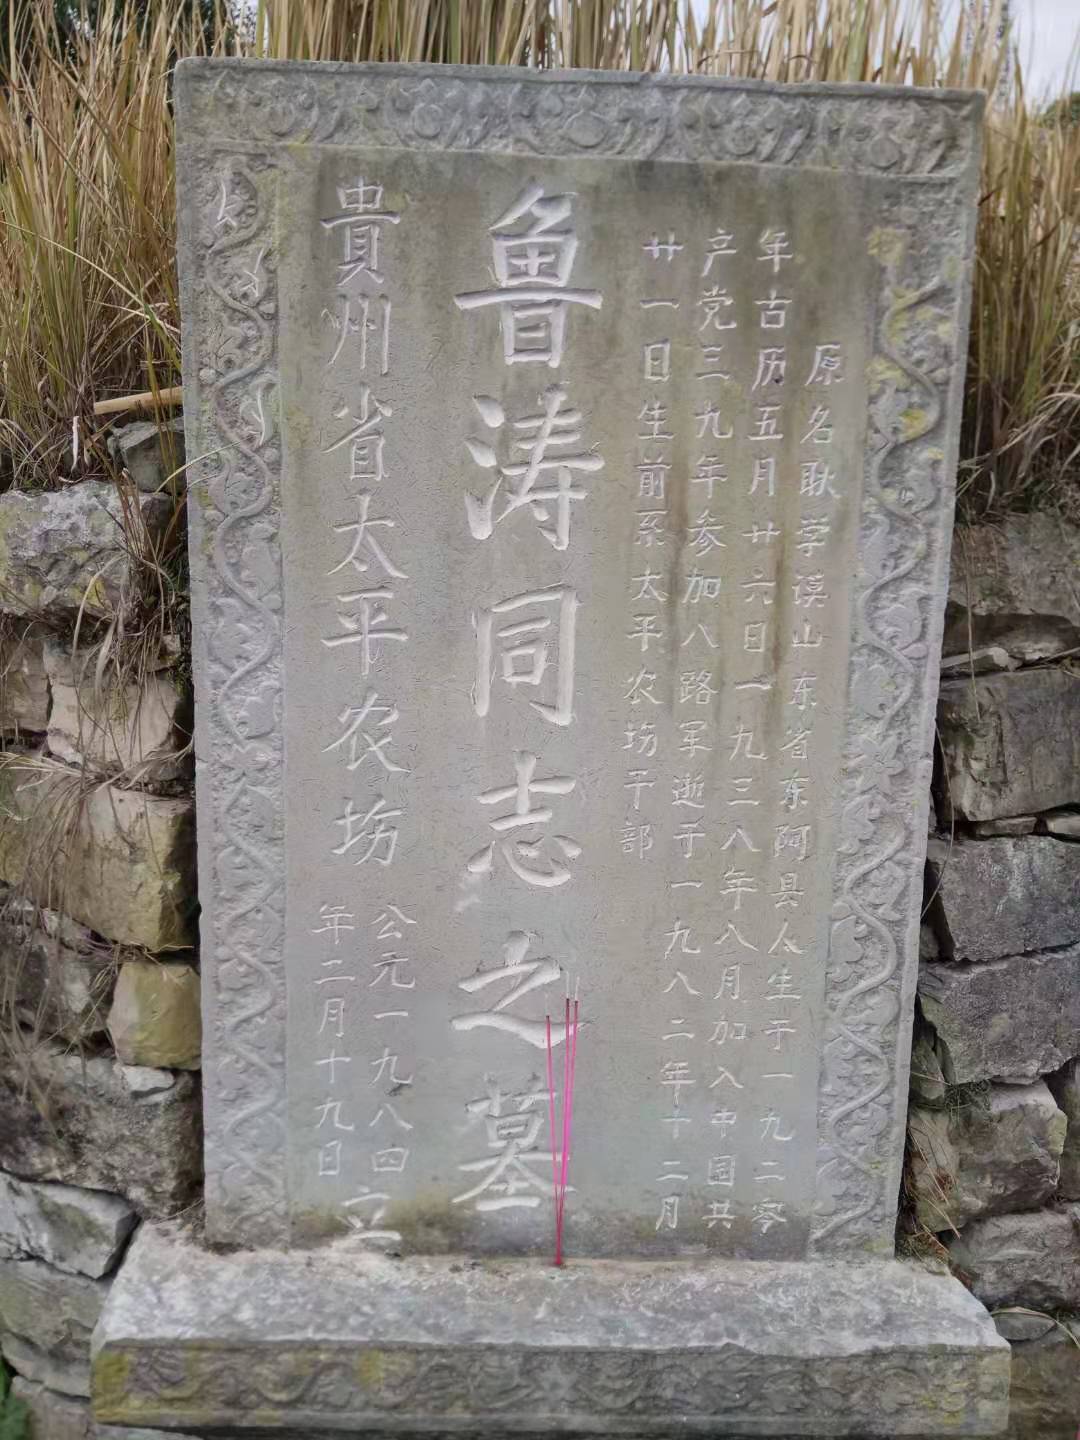 原名耿学谟山东省东阿县人生于一九二零
年古历五月廿六日一九三八年八月加入中国共
产党三九年参加八路军逝于一九八二年十二月
廿一日生前系太平农场干部
鲁涛同志之墓
貴州省太平农场
公元一九八四
年二月十九日
立